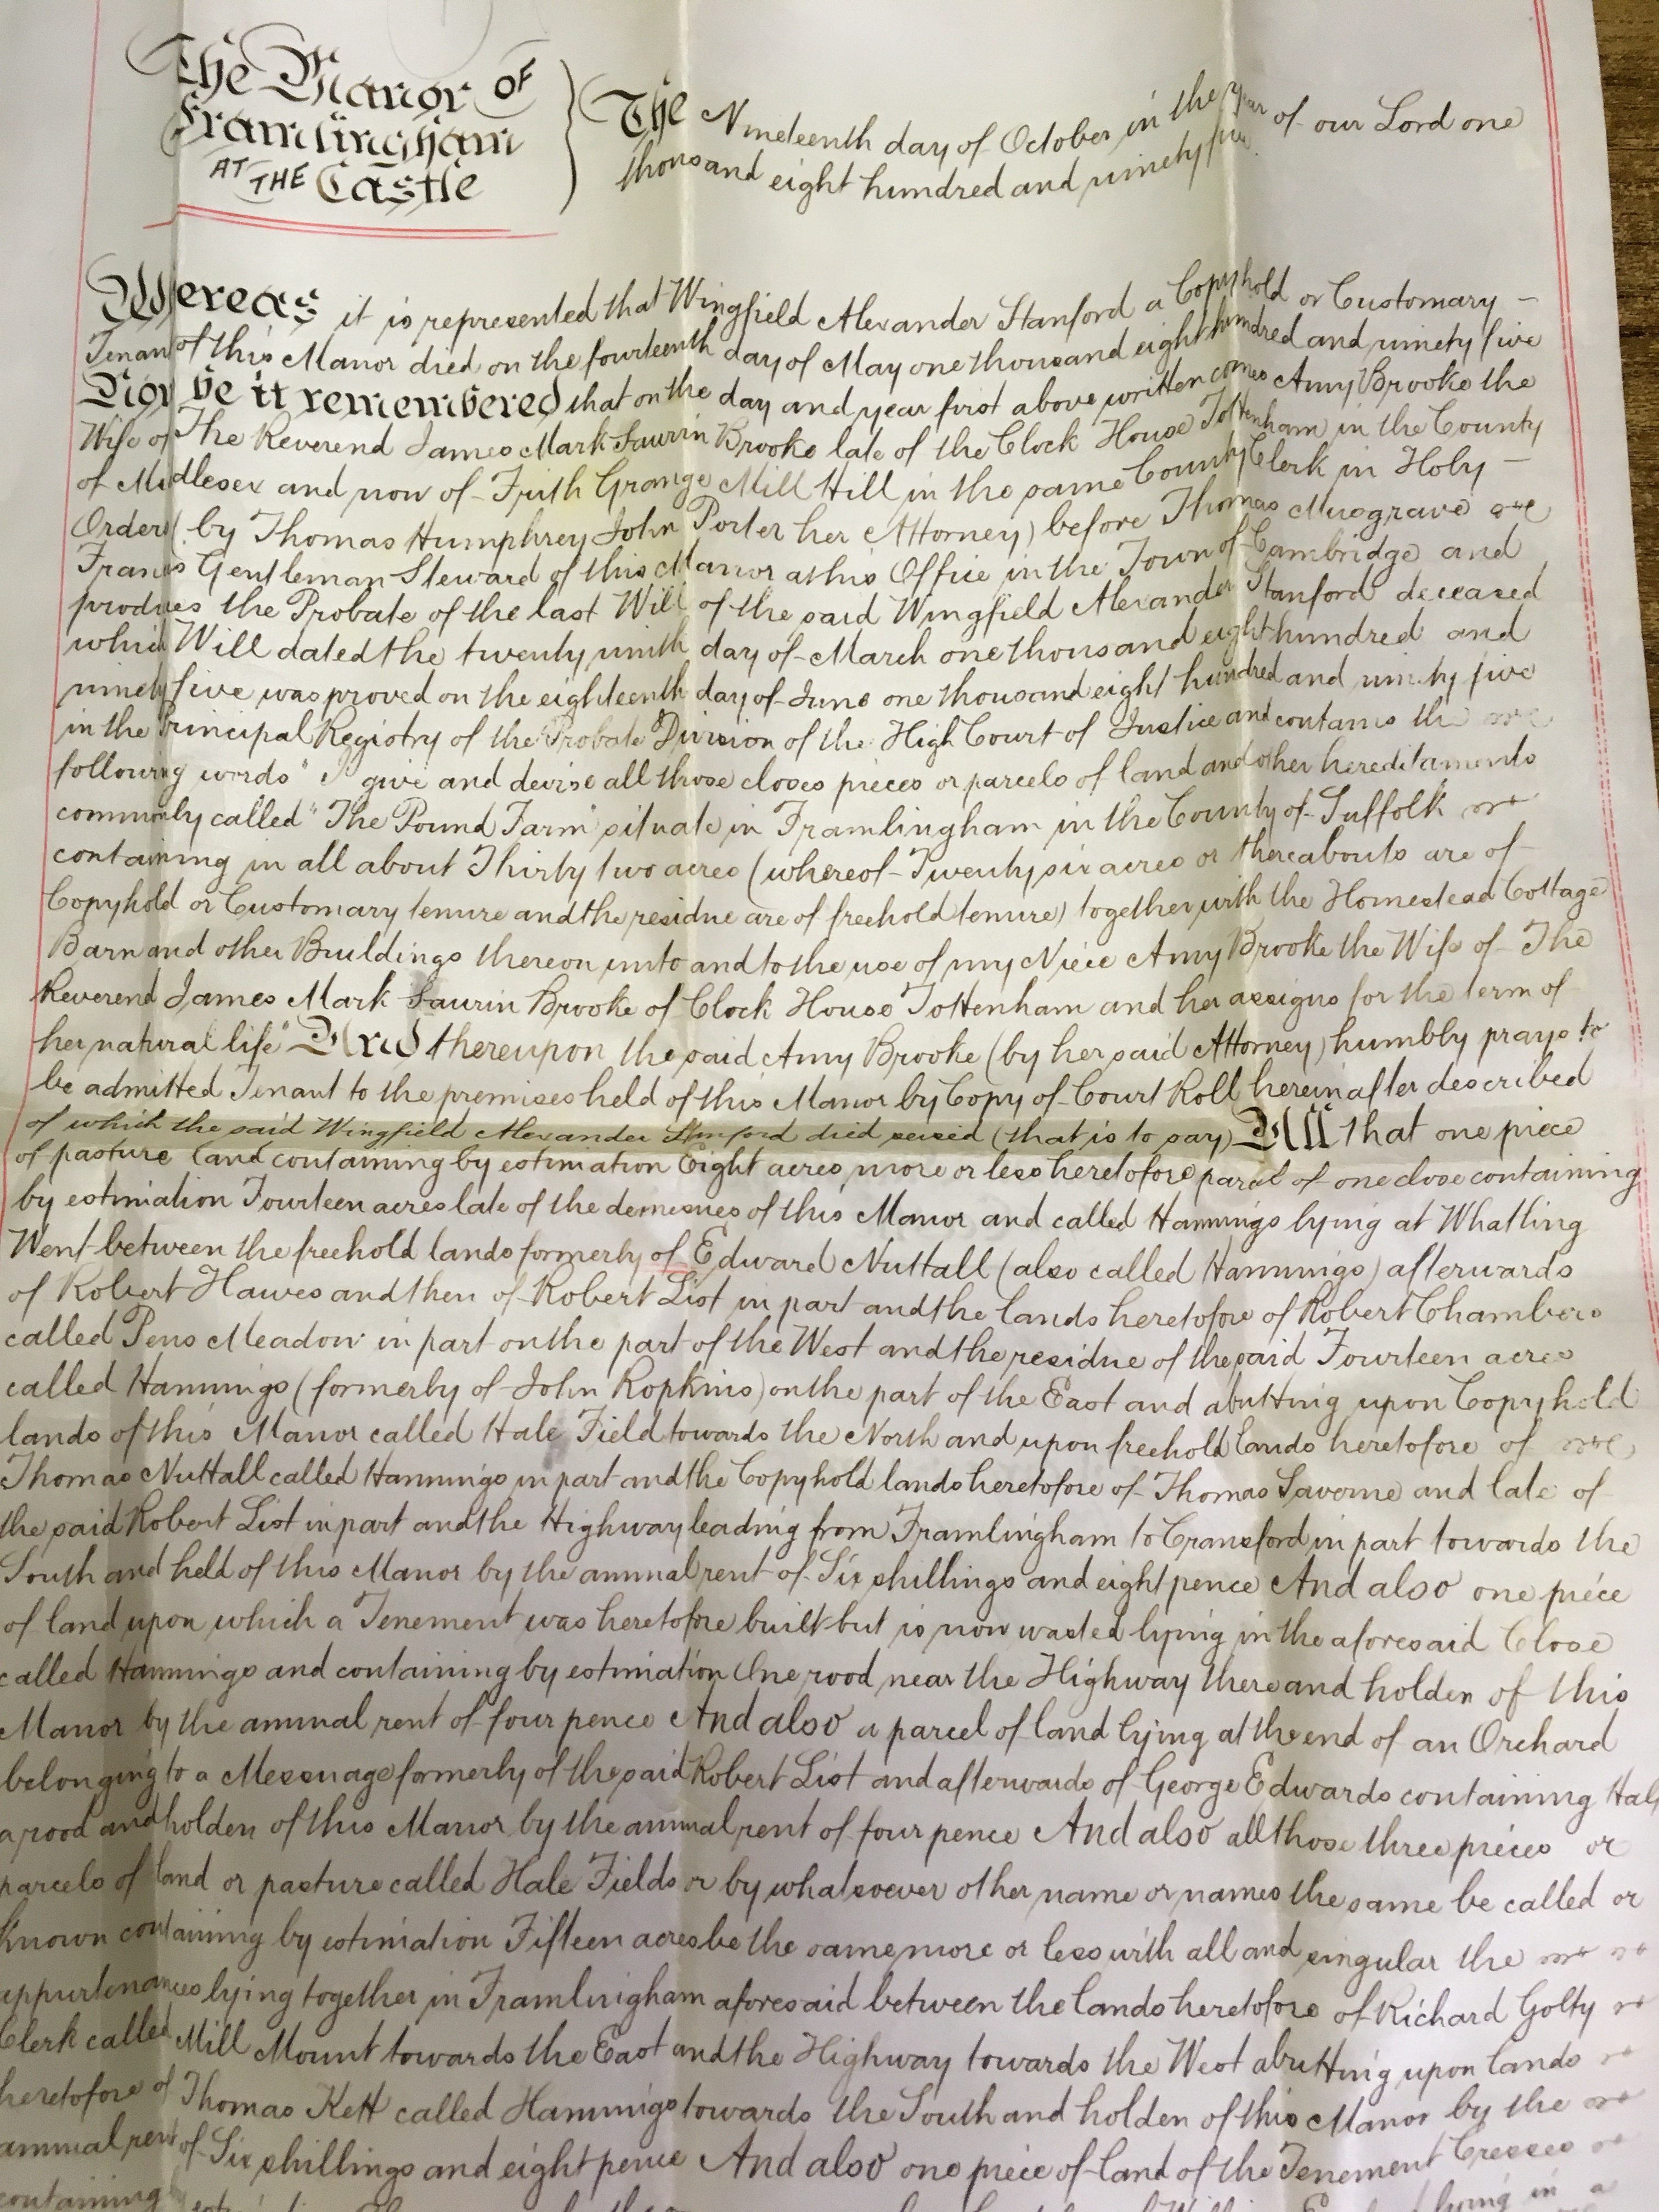 The Manor of
Framlingham
AT THE Castle
The Nineteenth day of October in the year of our Lord one
thousand eight hundred and ninety five
Whereas it is represented that Wingfield Alexander Stanford a Copyhold or Customary
Tenant of this Manor died on the fourteenth day of May one thousand eight hundred and ninety five
Now be it remembered that on the day and year first above written comes Amy Brooke the
Wife of The Reverend James Mark Saurin Brooke late of the Clock House Tottenham in the County
of Middlesex and now of Frith Grange Mill Hill in the same County Clerk in Holy
Orders (by Thomas Humphrey John Porter her Attorney) before Thomas Musgrave
Francis Gentleman Steward of this Manor at his Office in the Town of Cambridge and
produces the Probate of the last Will of the said Wingfield Alexander Stanford deceased
which Will dated the twenty ninth day of March one thousand eight hundred and
ninety five was proved on the eighteenth day of June one thousand eight hundred and ninety five
in the Principal Registry of the Probate Division of the High Court of Justice and contains the
following words "I give and devise all those closes pieces or parcels of land and other hereditaments
commonly called "The Pound Farm" situate in Framlingham in the County of Suffolk
containing in all about Thirty two acres (whereof Twenty six acres or thereabouts are of
Copyhold or Customary tenure and the residue are of freehold tenure) together with the Homestead Cottage
Barn and other Buildings thereon unto and to the use of my Niece Amy Brooke the Wife of The
Reverend James Mark Saurin Brooke of Clock House Tottenham and her assigns for the term of
her natural life" And thereupon the said Amy Brooke (by her said Attorney) humbly prays to
be admitted Tenant to the premises held of this Manor by Copy of Court Roll hereinafter described
of which the said Wingfield Alexander Stanford died seised (that is to say) All that one piece
of pasture land containing by estimation Eight acres more or less heretofore parcel of one close containing
by estimation Fourteen acres late of the demesnes of this Manor and called Hammings lying at Whatling
Went between the freehold lands formerly of Edward Nuttall (also called Hammings) afterwards
of Robert Hawes and then of Robert List in part and the lands heretofore of Robert Chambers
called Pens Meadow in part on the part of the West and the residue of the said Fourteen acres
called Hammings (formerly of John Ropkins) on the part of the East and abutting upon Copyhold
lands of this Manor called Hale Field towards the North and upon freehold lands heretofore of
Thomas Nuttall called Hammings in part and the Copyhold lands heretofore of Thomas Saverne and late of
the said Robert List in part and the Highway leading from Framlingham to Cransford in part towards the
South and held of this Manor by the annual rent of Six shillings and eight pence And also one piece
of land upon which a Tenement was heretofore built but is now wasted lying in the aforesaid Close
called Hammings and containing by estimation One rood near the Highway there and holden of this
Manor by the annual rent of four pence And also a parcel of land lying at the end of an Orchard
belonging to a Messuage formerly of the said Robert List and afterwards of George Edwards containing Half
a rood and holden of this Manor by the annual rent of four pence And also all those three pieces or
parcels of land or pasture called Hale Fields or by whatsoever other name or names the same be called or
known containing by estimation Fifteen acres be the same more or less with all and singular the
appurtenances lying together in Framlingham aforesaid between the lands heretofore of Richard Golty
Clerk called Mill Mount towards the East and the Highway towards the West abutting upon lands
heretofore of Thomas Kett called Hammings towards the South and holden of this Manor by the
annual rent of Six shillings and eight pence And also one piece of land of the Tenement Cresses
containing